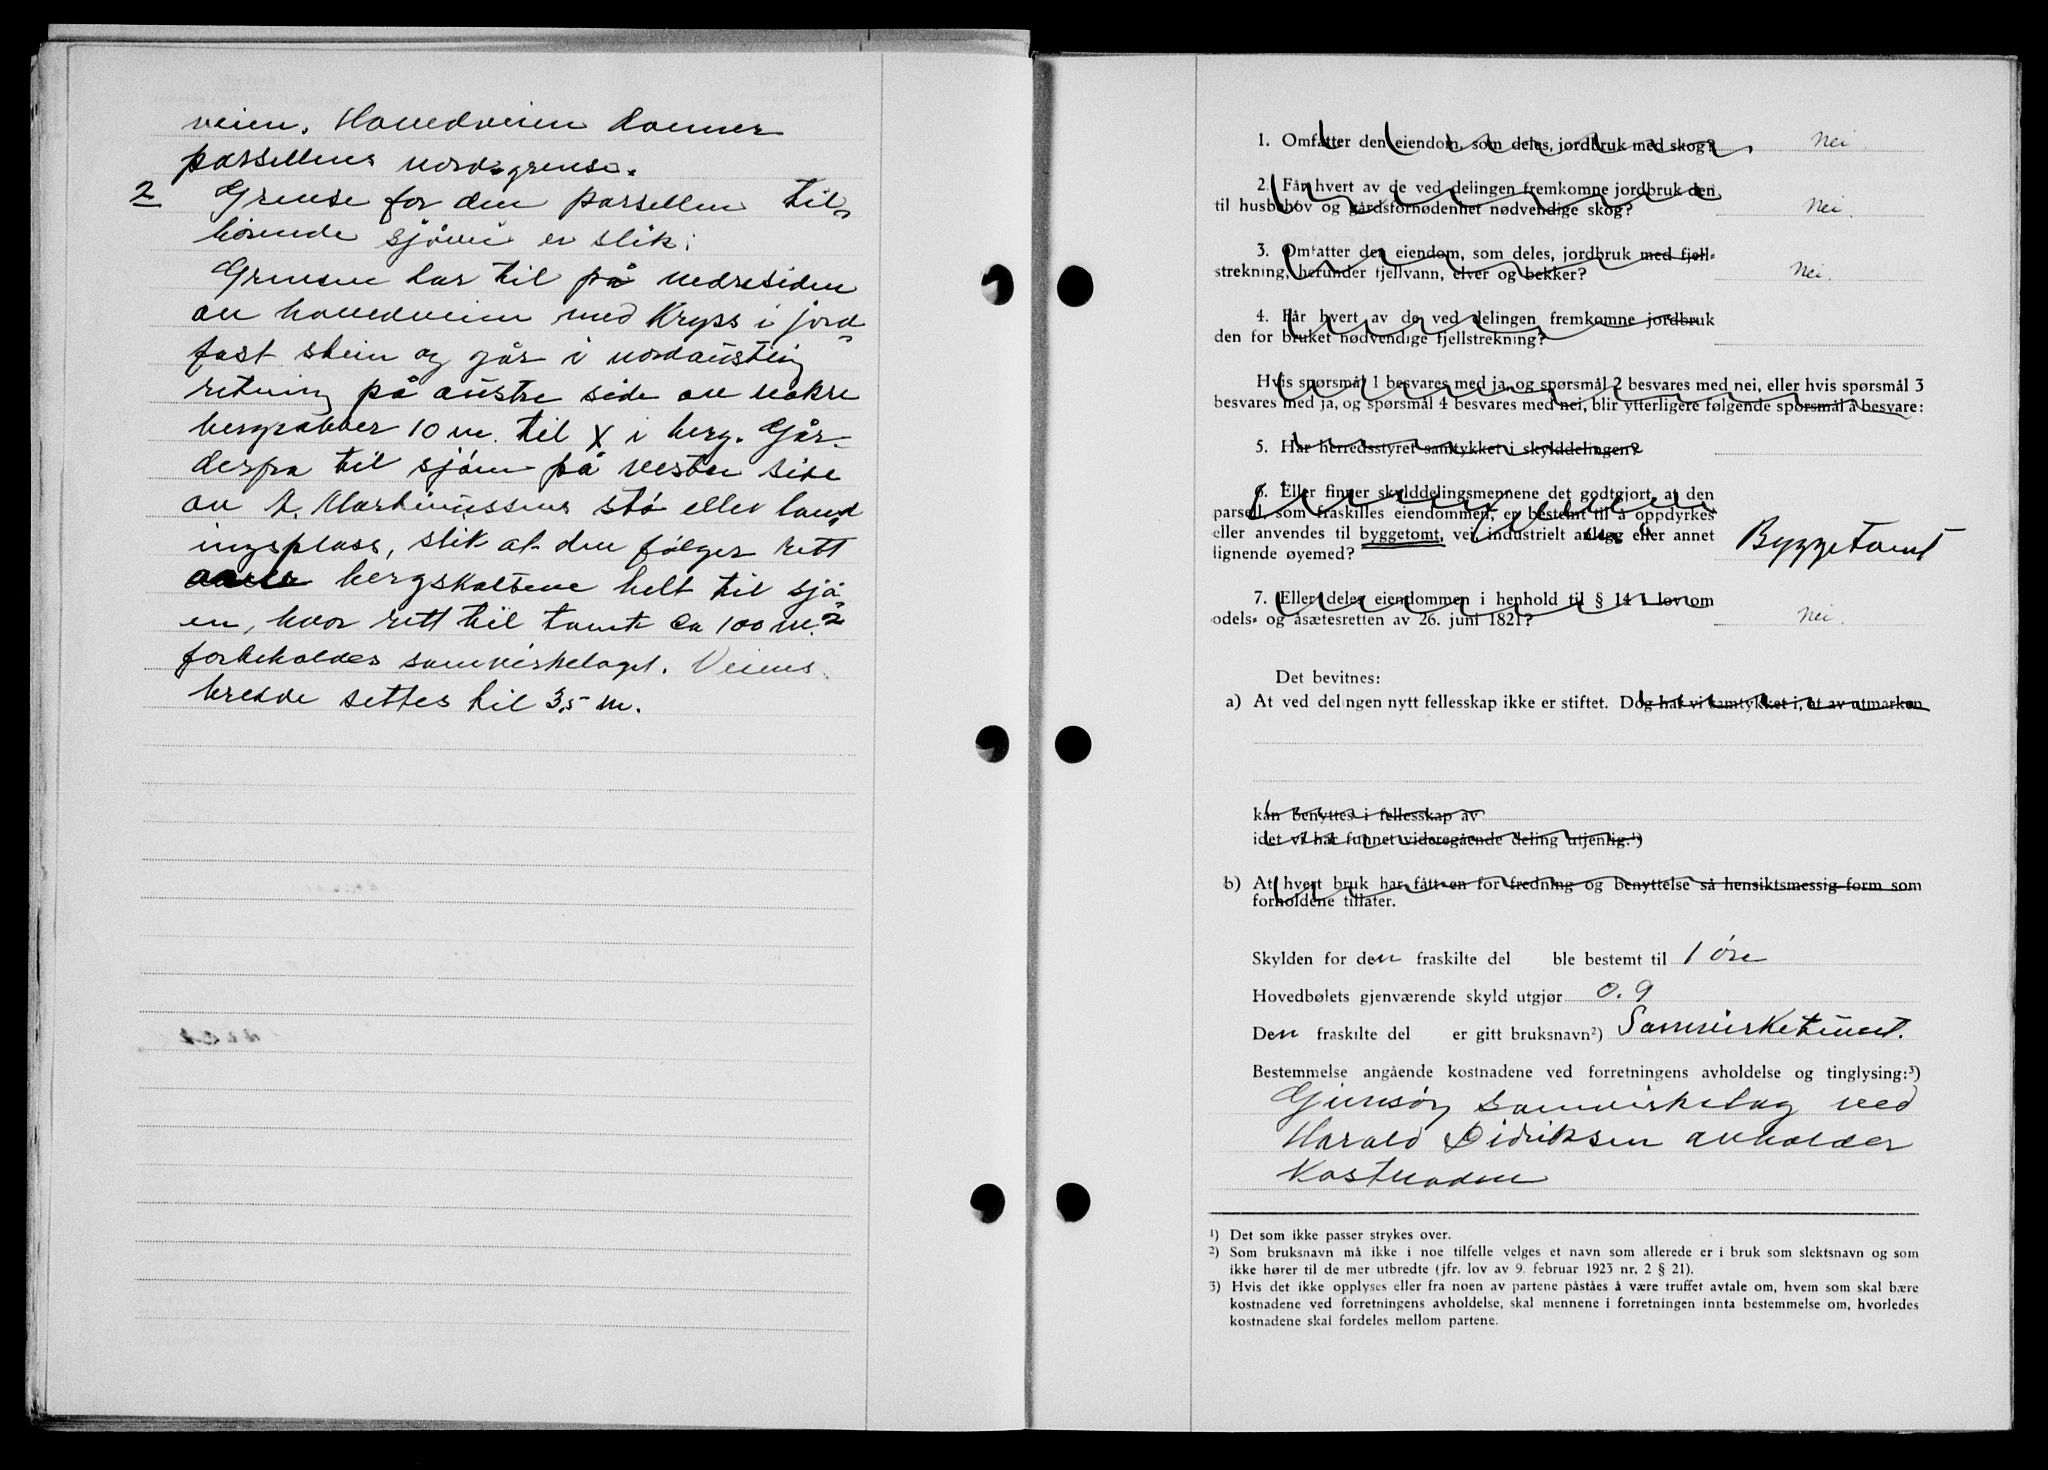 veien. Hovedveien danner
parsellens nordgrense.
2 Grense for den parsellen til=
hørende sjøvei er slik:
Grensen tar til på nedresiden
av hovedveien med kryss i jord=
fast stein og går i nordaustlig
retning på austre side av nokre
bergrabber 10 m. til X i berg. Går
derfra til sjøen på vestre side
av A. Martinussens stø eller land=
ingsplass, slik at den følger rett
over bergskoltene helt til sjø=
en, hvor rett til tomt ca 100 m.²
forbeholdes samvirkelaget. Veiens
bredde settes til 3,5 m.
1. Omfatter den eiendom, som deles, jordbruk med skog? Nei.
2. Får hvert av de ved delingen fremkomne jordbruk den
til husbehov og gårdsfornødenhet nødvendige skog? Nei.
3. Omfatter den eiendom, som deles, jordbruk med fjell=
strekning, herunder fjellvann, elver og bekker? Nei.
4. Får hvert av de ved delingen fremkomne jordbruk
den for bruket nødvendige fjellstrekning?
Hvis spørsmål 1 besvares med ja, og spørsmål 2 besvares med nei, eller hvis spørsmål 3
besvares med ja, og spørsmål 4 besvares med nei, blir ytterligere følgende spørsmål å besvare:
5. Har herredsstyret samtykket i skylddelingen?
6. Eller finner skylddelingsmennene det godtgjort, at den
parsell, som fraskilles eiendommen, er bestemt til å oppdyrkes
eller anvendes til byggetomt, vei, industrielt anlegg eller annet
lignende øyemed? Byggetomt
7. Eller deles eiendommen i henhold til § 14 i lov om
odels= og åsætesretten av 26. juni 1821? Nei.
Det bevitnes:
a) At ved delingen nytt fellesskap ikke er stiftet. Dog har vi samtykket i, at av utmarken
kan benyttes i fellesskap av
idet vi har funnet videregående deling utjenlig.¹)
b) At hvert bruk har fått en for fredning og benyttelse så hensiktsmessig form som
forholdene tillater.
Skylden for den fraskilte del ble bestemt til 1 øre
Hovedbølets gjenværende skyld utgjør 0.9
Den fraskilte del er gitt bruksnavn²) Samvirketunet.
Bestemmelse angående kostnadene ved forretningens avholdelse og tinglysing:³)
Gimsøy samvirkelag ved
Harald Didriksen avholder
kostnaden
¹) Det som ikke passer strykes over.
²) Som bruksnavn må ikke i noe tilfelle velges et navn som allerede er i bruk som slektsnavn og som
ikke hører til de mer utbredte (jfr. lov av 9. februar 1923 nr. 2 § 21).
³) Hvis det ikke opplyses eller fra noen av partene påståes å være truffet avtale om, hvem som skal bære
kostnadene ved forretningens avholdelse, skal mennene i forretningen innta bestemmelse om, hvorledes
kostnadene skal fordeles mellom partene.